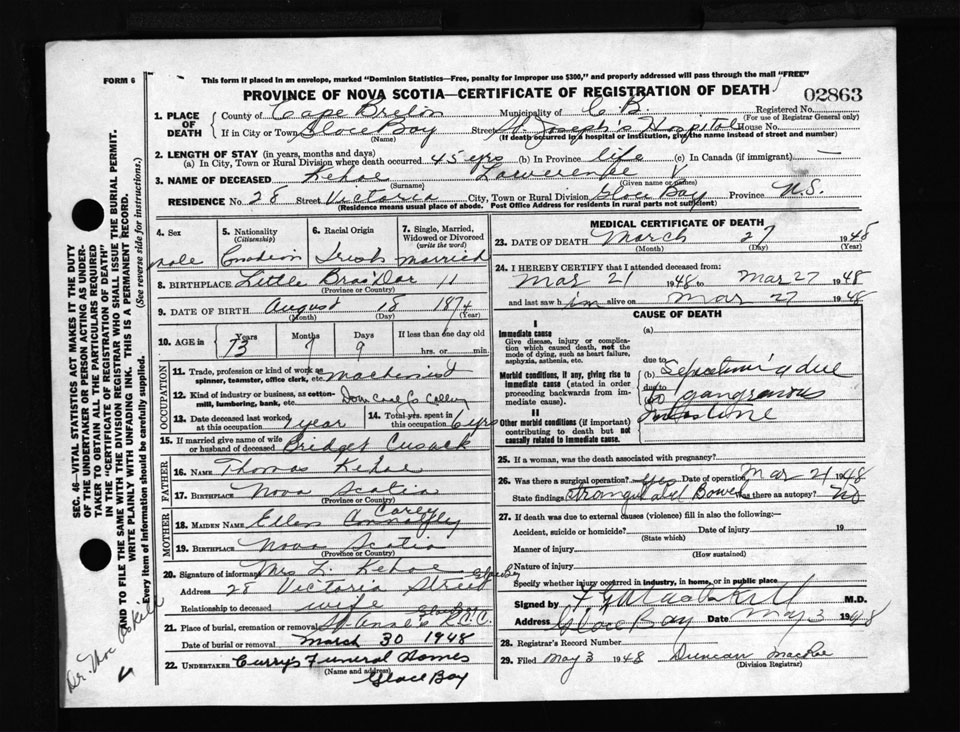 FORM 6
This form if placed in an envelope, marked "Dominion Statistics—Free, penalty for improper use $300," and properly addressed will pass through the mail "FREE"
PROVINCE OF NOVA SCOTIA—CERTIFICATE OF REGISTRATION OF DEATH
02863
1. PLACE OF DEATH
County of Cape Breton Municipality of C. B. Registered No.
(For use of Registrar General only)
If in City or Town Glace Bay Street St. Joseph's Hospital House No.
(Name) (If death occurred in a hospital or institution, give the name instead of street and number)
2. LENGTH OF STAY (in years, months and days)
(a) In City, Town or Rural Division where death occurred 45 yrs (b) In Province life (c) In Canada (if immigrant) —
3. NAME OF DECEASED Kehoe Lawerence
(Surname) (Given name or names)
RESIDENCE No. 28 Street Victoria City, Town or Rural Division Glace Bay Province N.S.
(Residence means usual place of abode. Post Office Address for residents in rural parts not sufficient)
4. Sex
5. Nationality
(Citizenship)
6. Racial Origin
7. Single, Married, Widowed or Divorced
(write the word)
male Canadian Irish married
8. BIRTHPLACE Little Bras'Dor 11
(Province or Country)
9. DATE OF BIRTH August 18 1874
(Month) (Day) (Year)
10. AGE in Years Months Days If less than one day old
73 7 9 hrs. or min.
OCCUPATION
11. Trade, profession or kind of work as spinner, teamster, office clerk, etc. machinist
12. Kind of industry or business, as cotton-mill, lumbering, bank, etc. Dom Coal Co
13. Date deceased last worked at this occupation 1 year
14. Total yrs. spent in this occupation 6 yrs
15. If married give name of wife or husband of deceased Bridget Cusack
FATHER
16. NAME Thomas Kehoe
17. BIRTHPLACE Nova Scotia
(Province or Country)
MOTHER
18. MAIDEN NAME Ellen Connolly Carey
19. BIRTHPLACE Nova Scotia
(Province or Country)
20. Signature of informant Mrs L. Kehoe
Address 28 Victoria Street Glace Bay
Relationship to deceased wife
21. Place of burial, cremation or removal St. Anne's R.C.C.
Date of burial or removal March 30 1948
22. UNDERTAKER Curry's Funeral Homes
(Name and address)
Glace Bay
MEDICAL CERTIFICATE OF DEATH
23. DATE OF DEATH March 27 1948
(Month) (Day) (Year)
24. I HEREBY CERTIFY that I attended deceased from:
Mar 21 1948 to Mar 27 1948
and last saw him alive on Mar 27 1948
CAUSE OF DEATH
I
Immediate cause
Give disease, injury or complication which caused death, not the mode of dying, such as heart failure, asphyxia, asthenia, etc.
(a)
due to
Morbid conditions, if any, giving rise to immediate cause (stated in order proceeding backwards from immediate cause).
(b) due
due to
to gangrenous
intestine
II
Other morbid conditions (if important) contributing to death but not causally related to immediate cause.
25. If a woman, was the death associated with pregnancy?
26. Was there a surgical operation? yes Date of operation Mar 21 1948
State findings Strangulated Bowel Was there an autopsy? No
27. If death was due to external causes (violence) fill in also the following:—
Accident, suicide or homicide? Date of injury 19
(State which)
Manner of injury
(How sustained)
Nature of injury
Specify whether injury occurred in industry, in home, or in public place
Signed by M.D.
Address Glace Bay Date May 3 1948
28. Registrar's Record Number
29. Filed May 3 1948 Duncan MacRae
(Division Registrar)
SEC. 46—VITAL STATISTICS ACT MAKES IT THE DUTY OF THE UNDERTAKER OR PERSON ACTING AS UNDERTAKER TO OBTAIN ALL THE PARTICULARS REQUIRED IN THE "CERTIFICATE OF REGISTRATION OF DEATH" AND TO FILE THE SAME WITH THE DIVISION REGISTRAR WHO SHALL ISSUE THE BURIAL PERMIT.
WRITE PLAINLY WITH UNFADING INK. THIS IS A PERMANENT RECORD.
Every item of information should be carefully supplied. (See reverse side for instructions.)